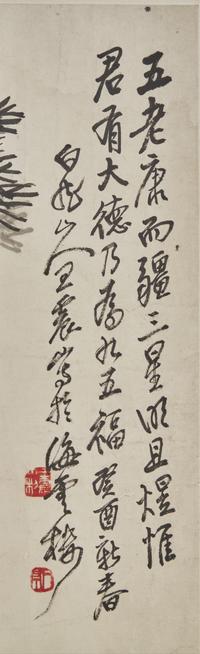 五老康而疆三星明且煜惟
君有大德乃為介五福癸酉新春
白龍山人王震寫於海雲樓